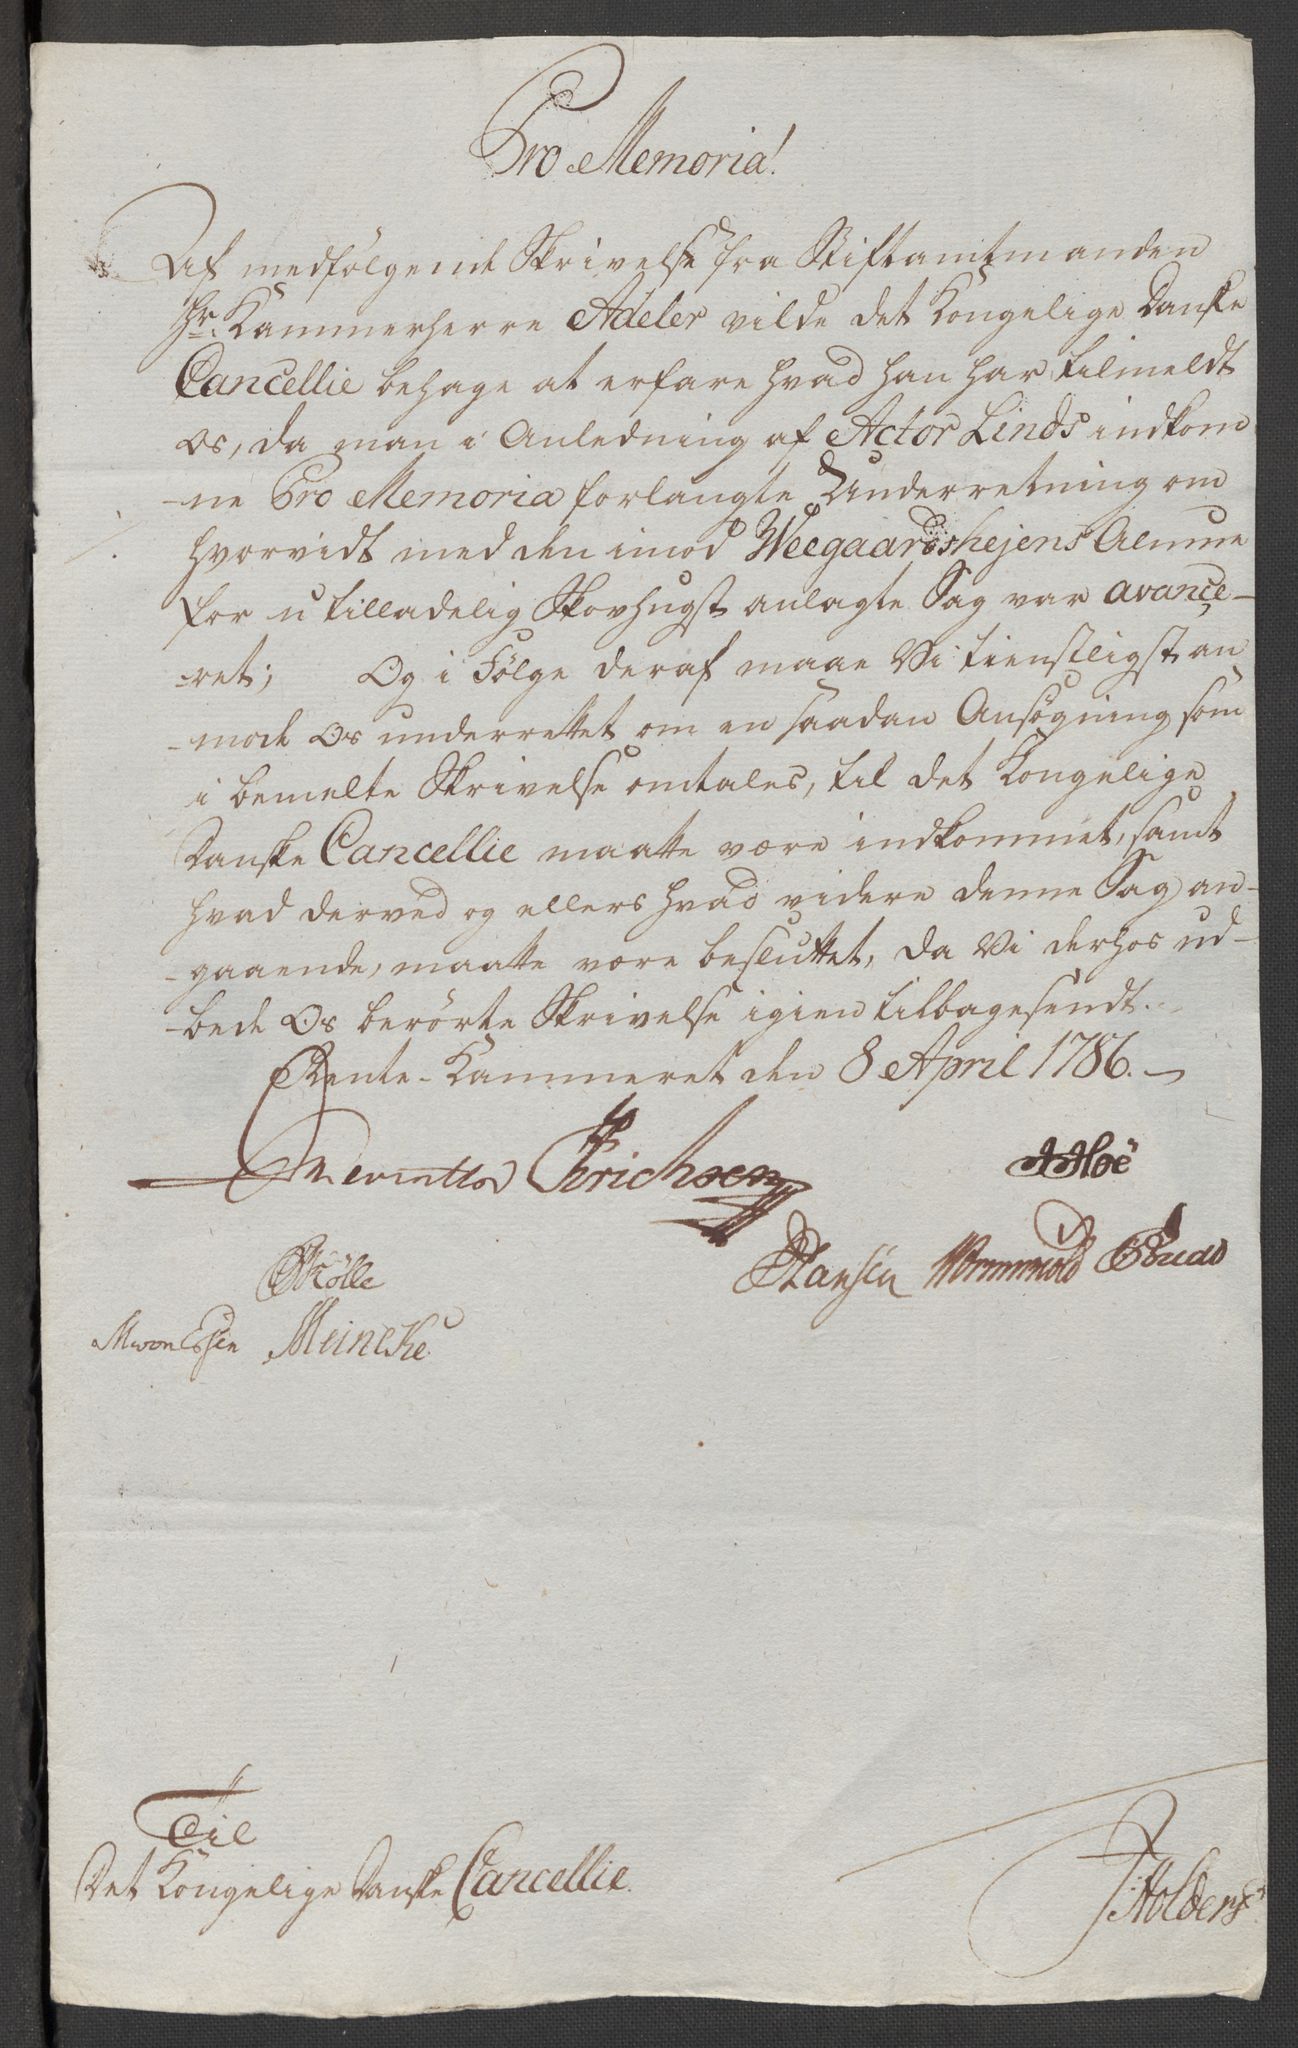 Pro Memoria!
Af medfølgende Skrivelse fra Stiftamtmanden
Hr. Kammerherre Adeler vilde det Kongelige Danske
Cancellie behage at erfare hvad han har tilmeldt
Os, da man i Anledning af Actor Linds indkom
-ne Pro Memoria forlangte Underretning om
hvorvidt med den imod Weegaardshejens Almue
for utilladelig Skovhugst anlagte Sag var avance-
-ret; Og i Følge deraf maae Vi tienstligst an
-mode Os underrettet om en saadan Ansøgning som
i bemelte Skrivelse omtales, til det Kongelige
Danske Cancellie maatte være indkommet, samt
hvad derved og ellers hvad videre denne Sag an-
-gaaende, maatte være besluttet, da Vi derhos ud-
-bede Os berørte Skrivelse igien tilbagesendt.
Rente-Kammeret den 8 April 1786.
Erichsen
Hoë
Hansen Wormskiold
Mölle
M von Essen Meincke
Til
Det Kongelige Danske Cancellie.